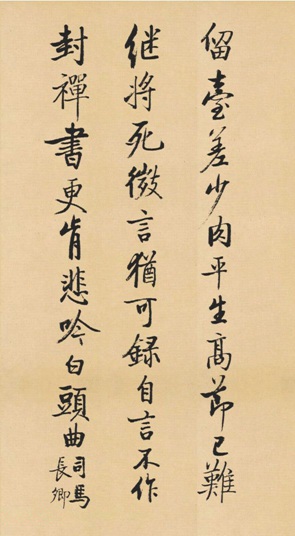 留臺差少肉平生高節已難
继将死微言猶可録自言不作
封禪書更肯悲吟白頭曲
司馬
長卿